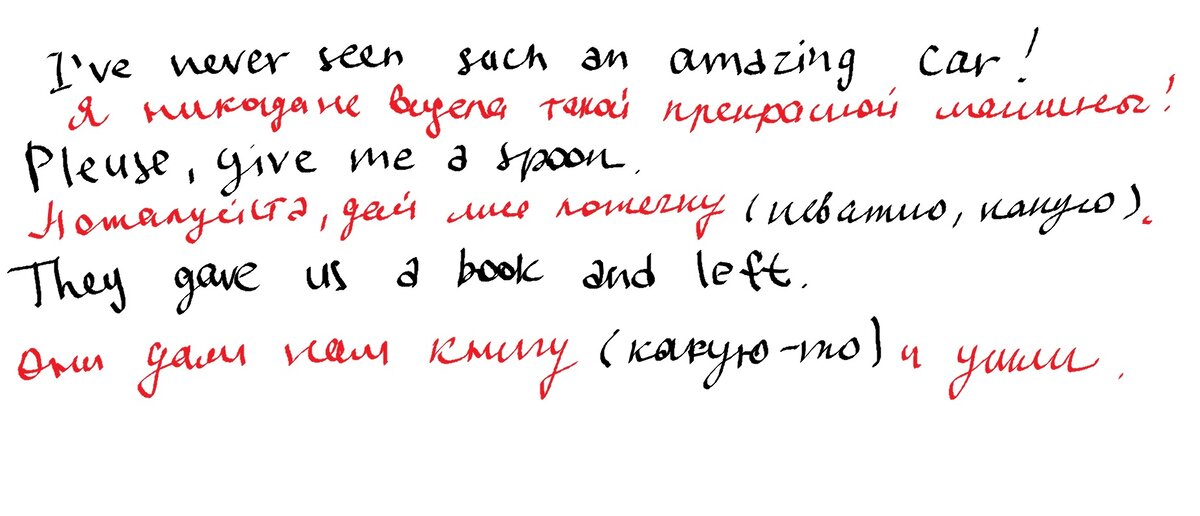 I've never seen such an amazing car!
Я никогда не видела такой прекрасной машины!
Please, give me a spoon.
Пожалуйста, дай мне ложечку (неважно, какую).
They gave us a book and left.
Они дали нам книгу (какую-то) и ушли.